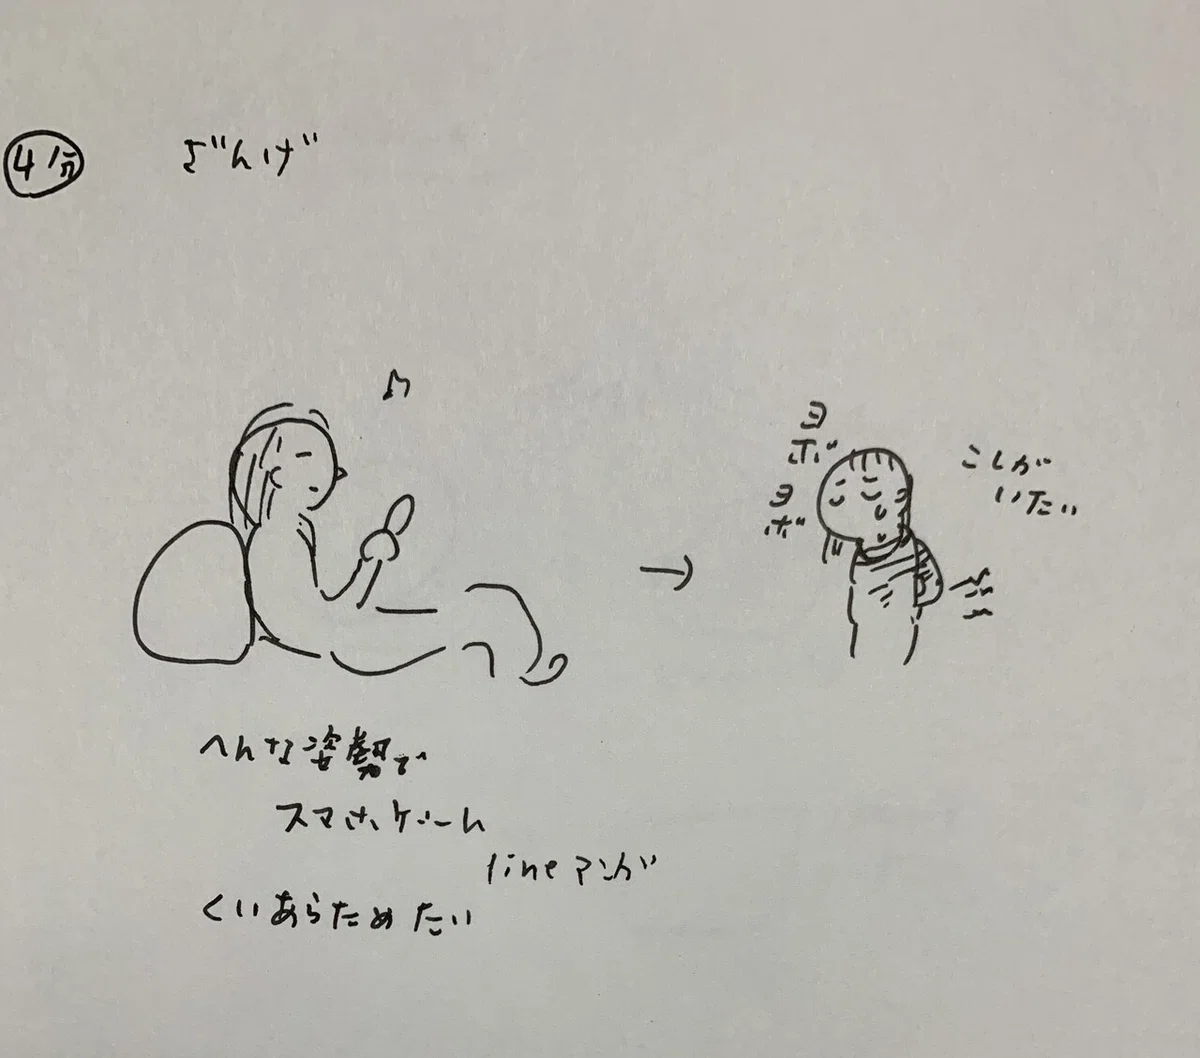 4分
ざんげ
♪
ヨボ
ヨボ
こしが
いたい
→
へんな姿勢で
スマホゲーム
lineマンガ
くいあらためたい